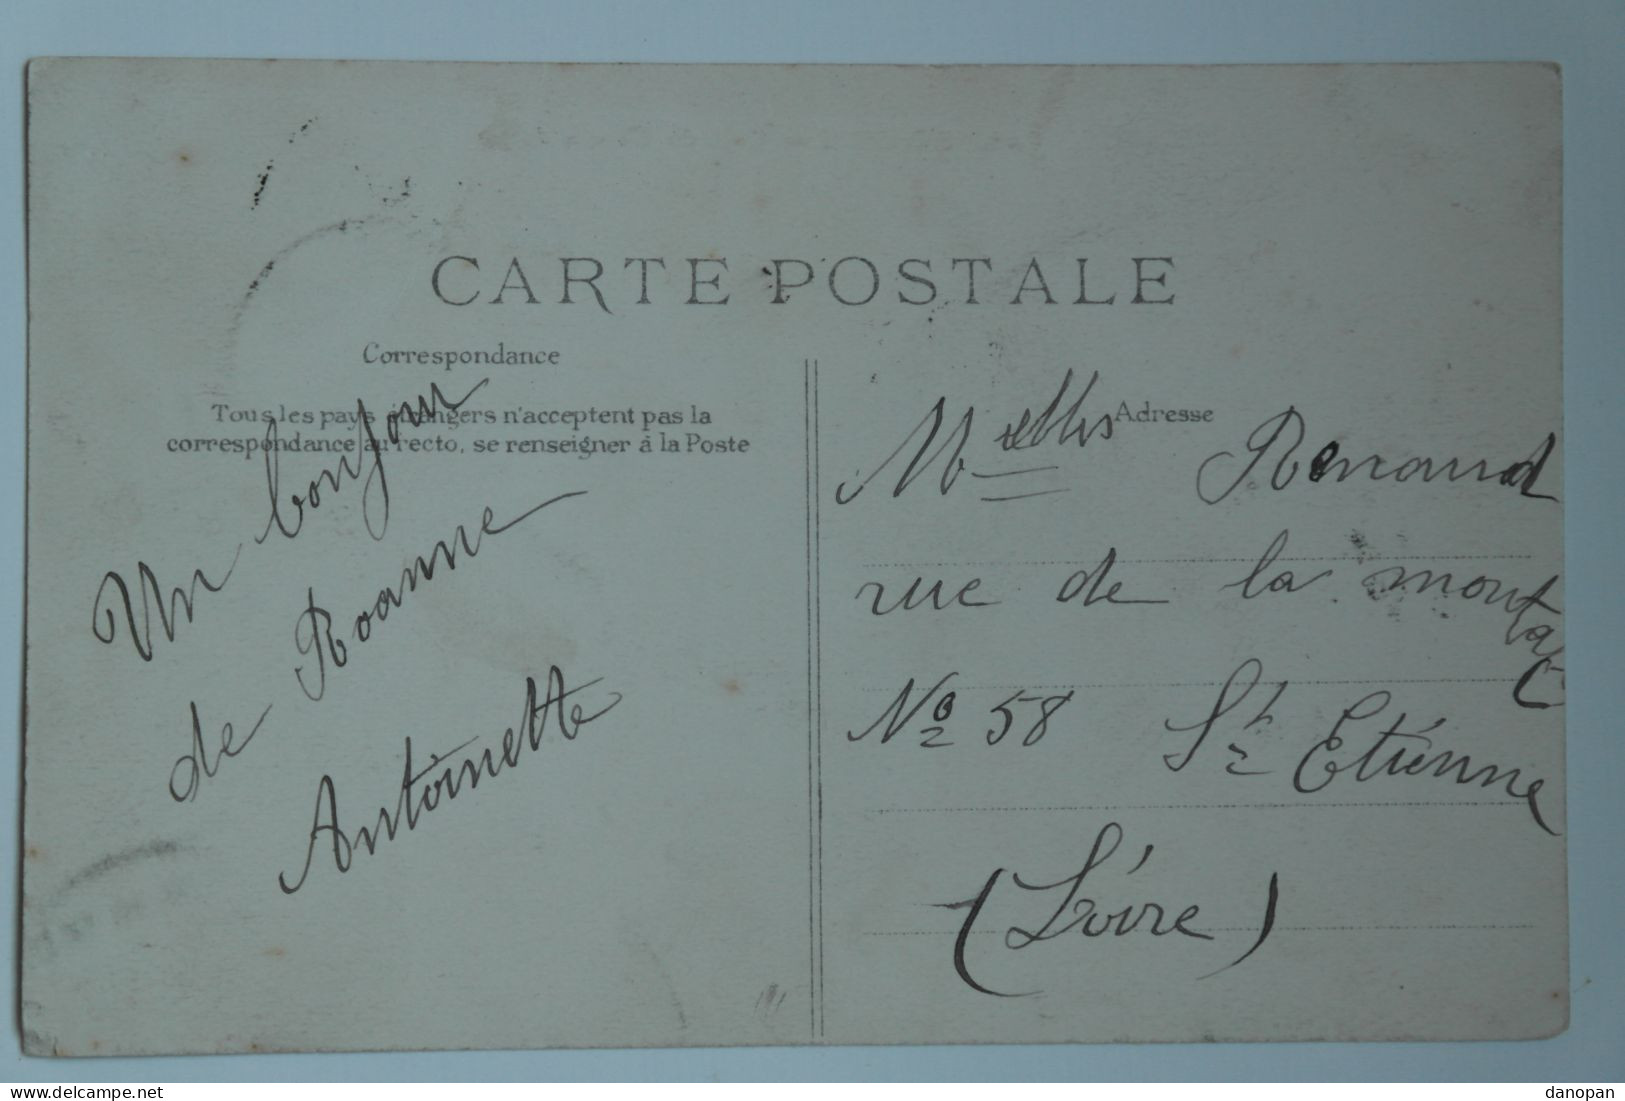 CARTE POSTALE
Correspondance
Tous les pays étrangers n'acceptent pas la
correspondance au recto, se renseigner à la Poste
Un bonjour
de Roanne
Antoinette
Adresse
Melles Renaud
rue de la montat
N° 58 St Etiénne
(Loire)
delcampe.net
danopan